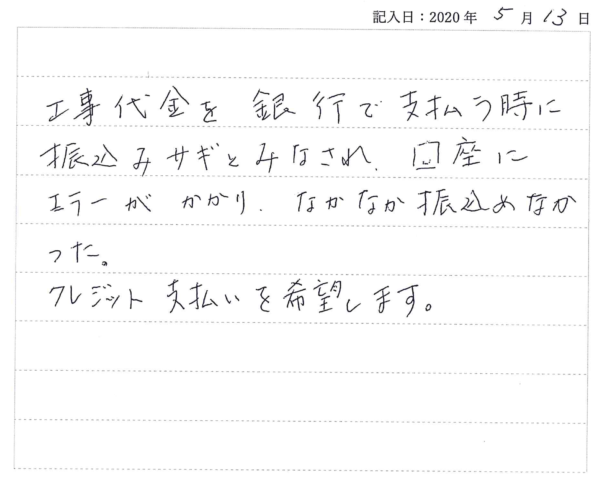 記入日：2020年 5月 13日
工事代金を 銀行で支払う時に
振込みサギとみなされ、口座に
エラーが かかり、なかなか振込めなか
った。
クレジット支払いを希望します。